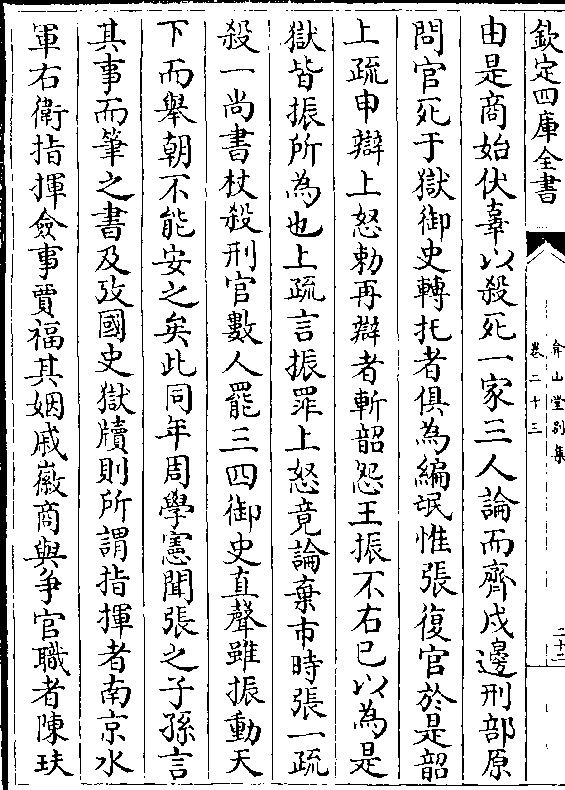 欽定四庫全書
弇山堂別集
卷二十三
二十二
由是商始伏辜以殺死一家三人論而齊戍邊刑部原
問官死于獄御史轉托者俱為編氓惟張復官於是韶
上疏申辯上怒勅再辯者斬韶怨王振不右已以為是
獄皆振所為也上疏言振罪上怒竟論棄市時張一疏
殺一尚書杖殺刑官數人罷三四御史直聲雖振動天
下而舉朝不能安之矣此同年周學憲聞張之子孫言
其事而筆之書及攷國史獄牘則所謂指揮者南京水
軍右衛指揮僉事賈福其姻戚徽商與爭官職者陳玞